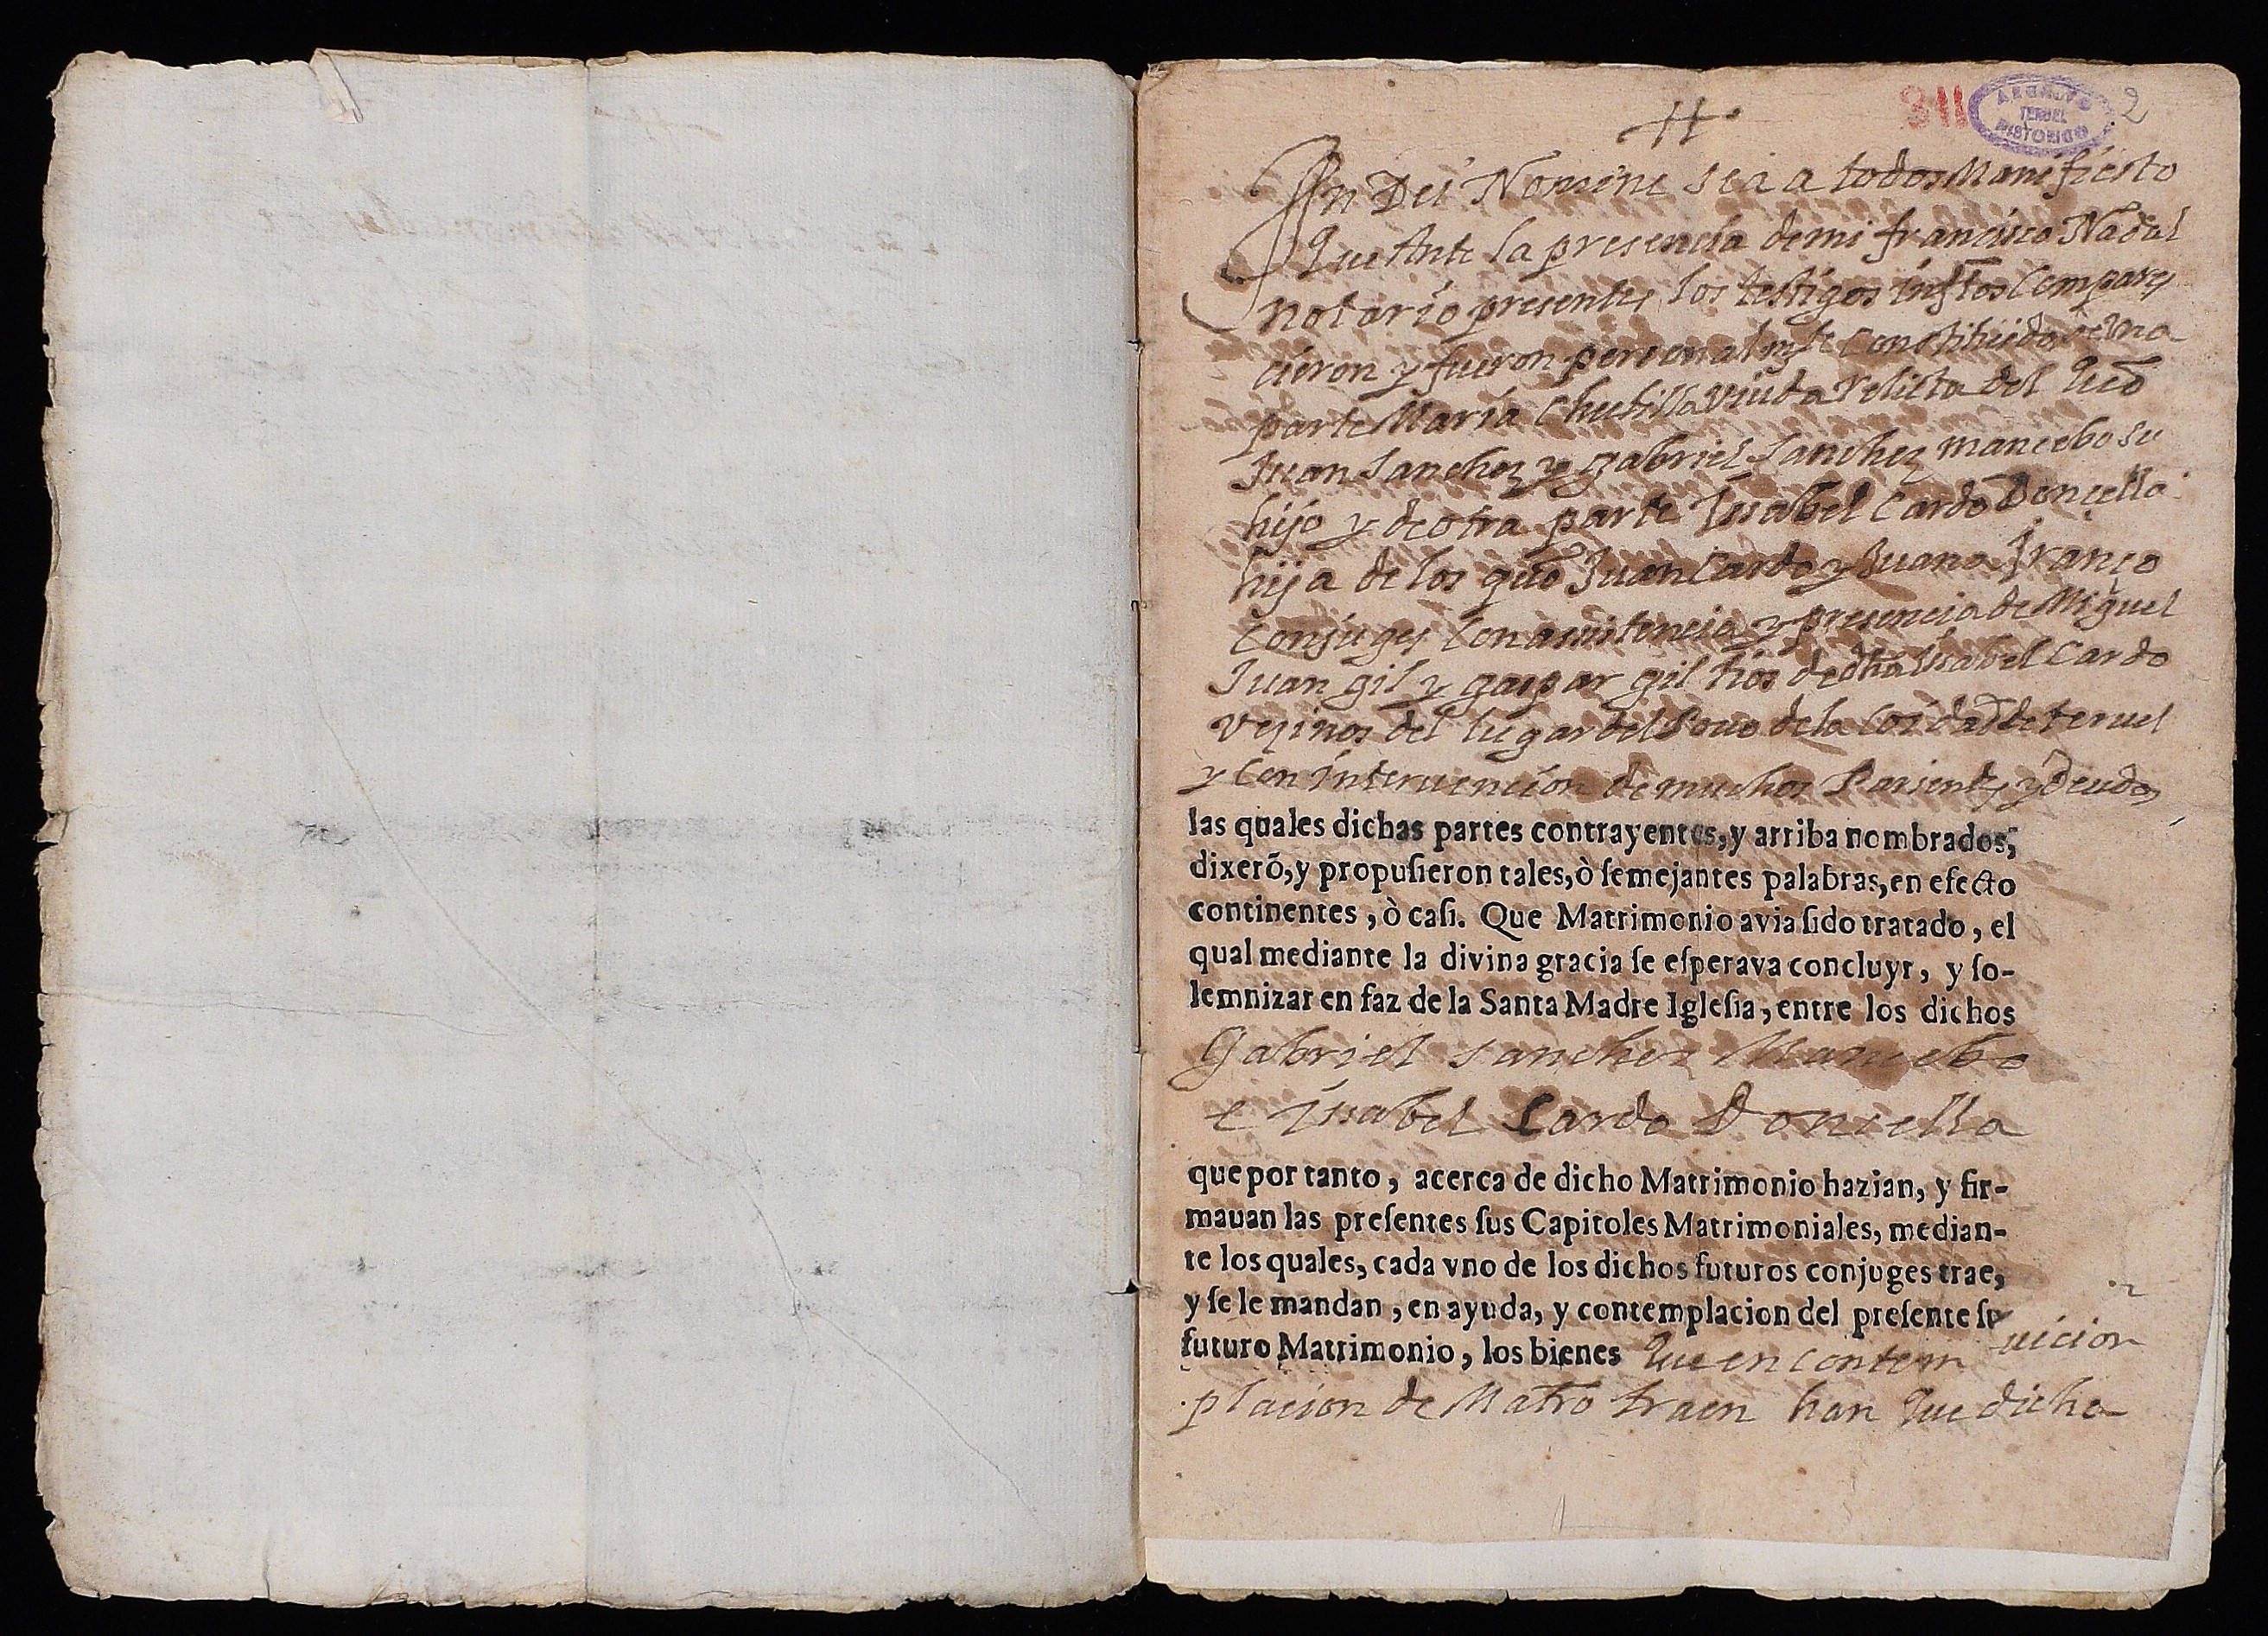 311
ARCHIVO
TERUEL
HISTORICO
2
In Dei Nomine sea a todos Manifiesto
Que Ante la presencia de mi francisco Nadal
notario presentes los testigos infros Compare
cieron y fueron personalmte Constituidos de una
parte Maria viuda relicta del quo
Juan Sanchez y gabriel Sanchez mancebo su
hijo y de otra parte Issabel Cardo Donçella
hija de los quo Juan Cardo y Juana franco
Conjuges Con assistencia y presencia de Miguel
Juan gil y gaspar gil tios de dha Issabel Cardo
vezinos del lugar del Pouo de la Coidad de teruel
y Con interuencion de muchos Parientes y deudos
las quales dichas partes contrayentes, y arriba nombrados,
dixerõ, y propuſieron tales, ò ſemejantes palabras, en efecto
continentes, ò caſi. Que Matrimonio avia ſido tratado, el
qual mediante la divina gracia ſe eſperava concluyr, y ſo-
lemnizar en faz de la Santa Madre Igleſia, entre los dichos
Gabriel Sanchez Mancebo
e Issabel Cardo Doncella
que por tanto, acerca de dicho Matrimonio hazian, y fir-
mauan las preſentes ſus Capitoles Matrimoniales, median-
te los quales, cada vno de los dichos futuros conjuges trae,
y ſe le mandan, en ayuda, y contemplacion del preſente ſu
futuro Matrimonio, los bienes Que en contem
uicion
placion de Matro traen han Que dicha